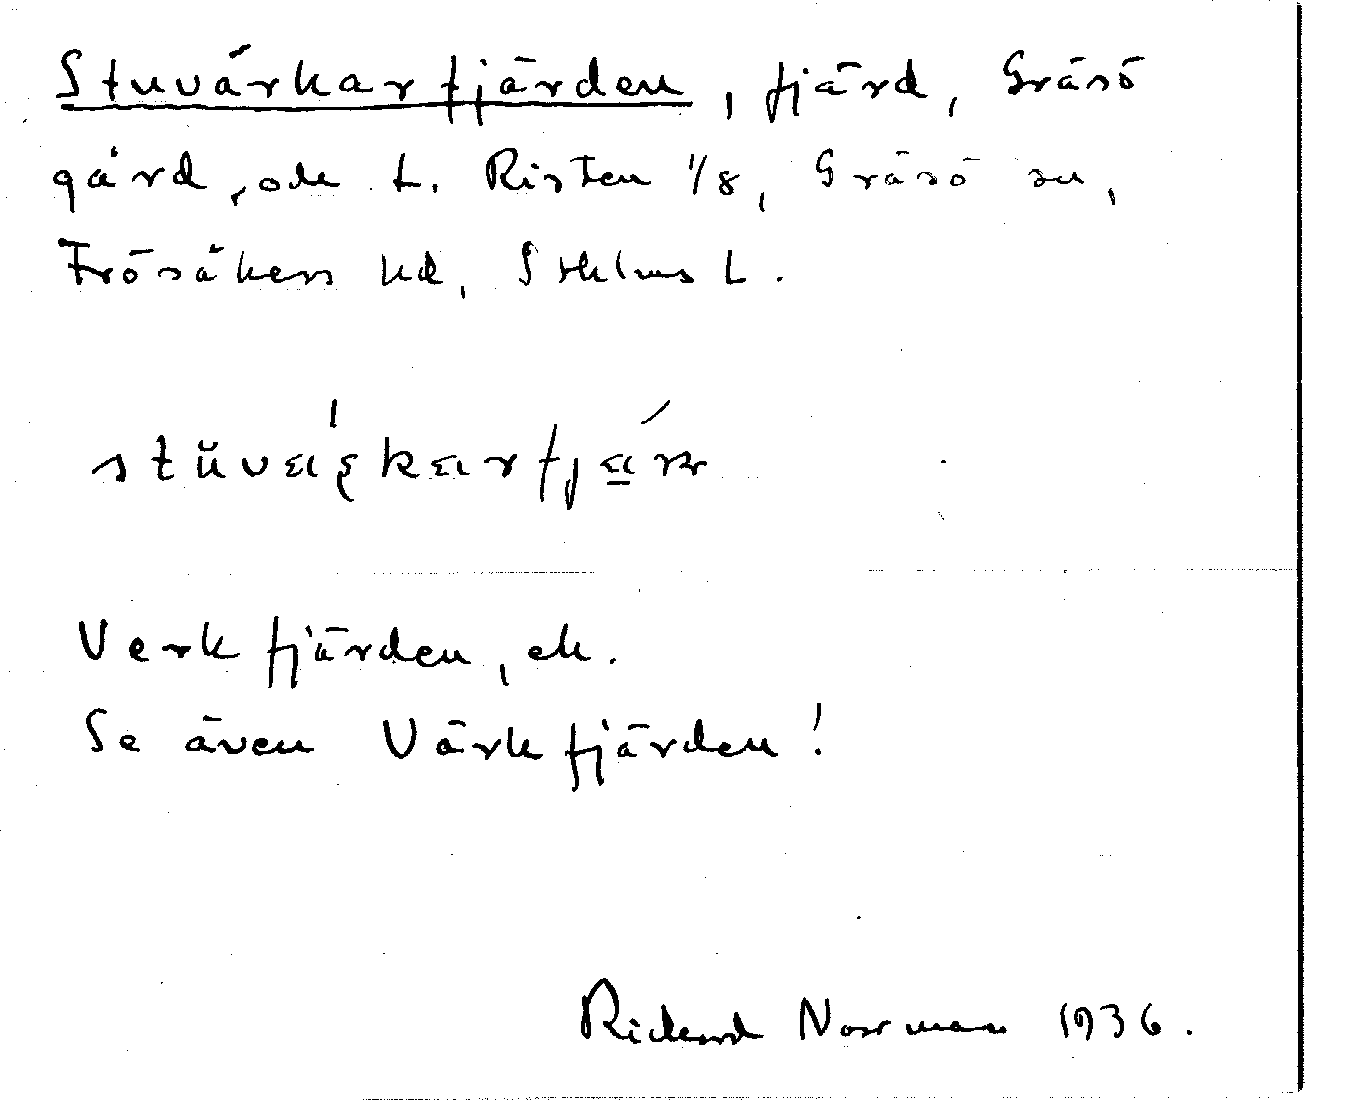 Stuvårkarfjärden, fjärd, Gräsö
gård, och L. Risten 1/8, Gräsö sn,
Frösåkers hd, Sthlms L.
Verkfjärden, ek.
Se även Värkfjärden!
Rickard Norrman 1936.